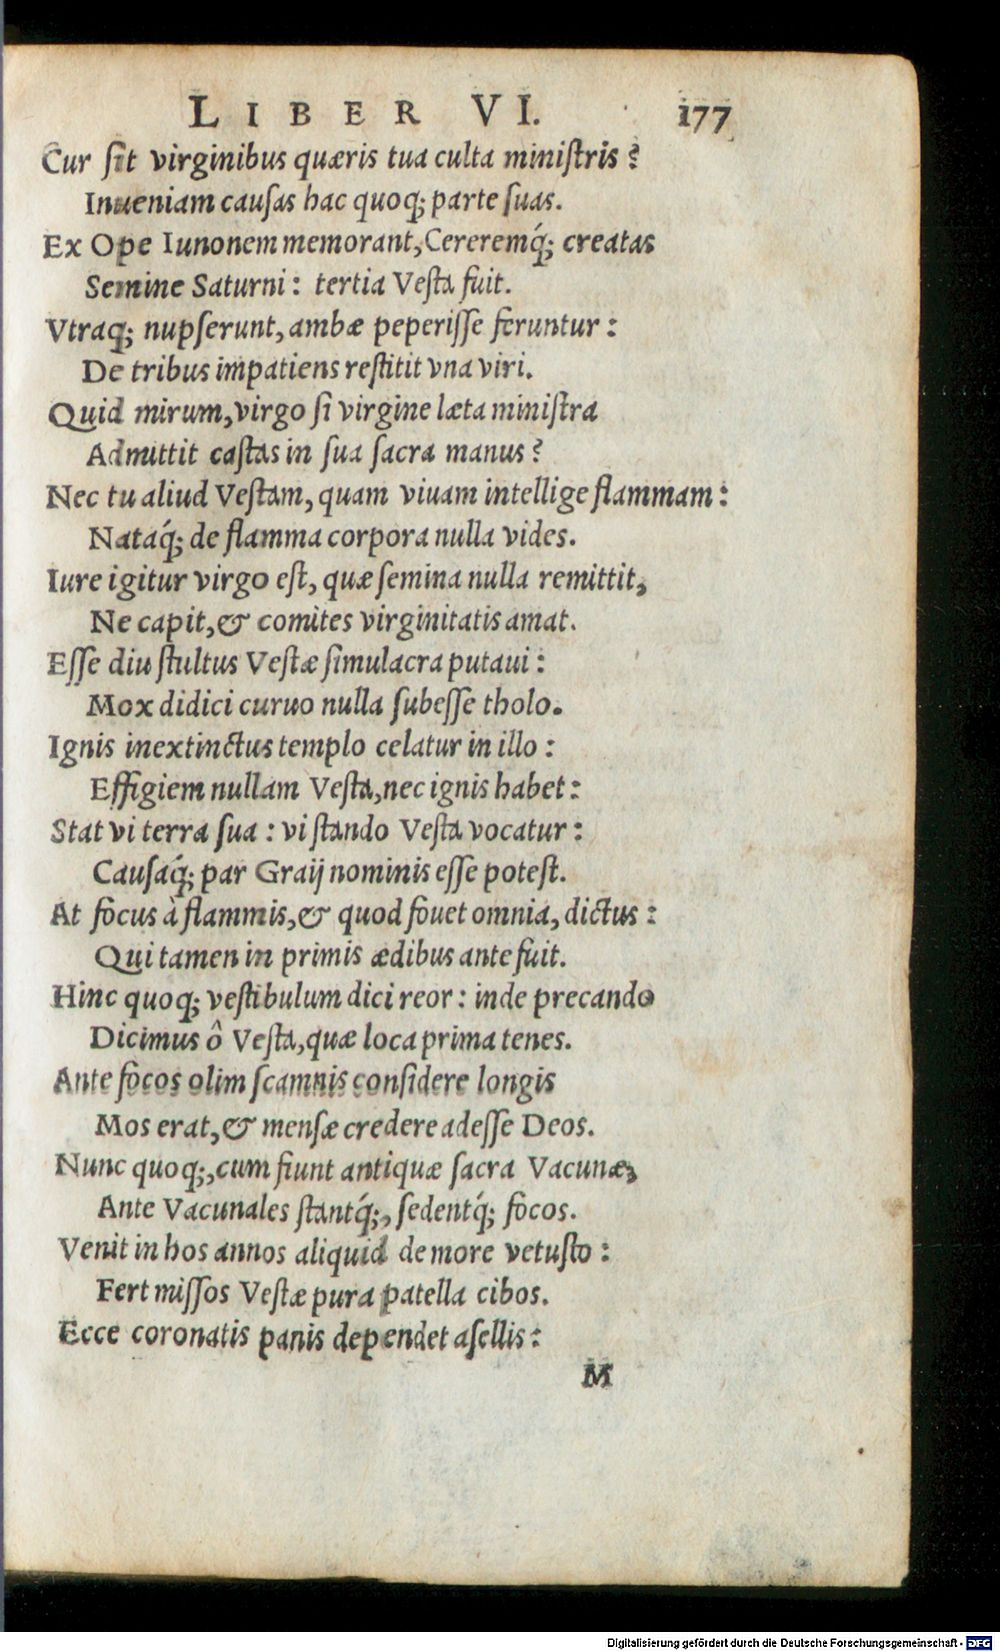 LIBER VI. 177
Cur ſit virginibus quæris tua culta miniſtris?
Inueniam cauſas hac quoq; parte ſuas.
Ex Ope Iunonem memorant, Cereremq́; creatas
Semine Saturni: tertia Veſta fuit.
Vtraq; nupſerunt, ambæ peperiſſe feruntur:
De tribus impatiens reſtitit vna viri.
Quid mirum, virgo ſi virgine læta miniſtra
Admittit caſtas in ſua ſacra manus?
Nec tu aliud Veſtam, quam viuam intellige flammam:
Nataq́; de flamma corpora nulla vides.
Iure igitur virgo eſt, quæ ſemina nulla remittit,
Ne capit, & comites virginitatis amat.
Eſſe diu ſtultus Veſtæ ſimulacra putaui:
Mox didici curuo nulla ſubeſſe tholo.
Ignis inextinctus templo celatur in illo:
Effigiem nullam Veſta, nec ignis habet:
Stat vi terra ſua: vi ſtando Veſta vocatur:
Cauſaq́; par Graij nominis eſſe poteſt.
At focus à flammis, & quod fouet omnia, dictus:
Qui tamen in primis ædibus ante fuit.
Hinc quoq; veſtibulum dici reor: inde precando
Dicimus ô Veſta, quæ loca prima tenes.
Ante focos olim ſcamnis conſidere longis
Mos erat, & menſæ credere adeſſe Deos.
Nunc quoq;, cum fiunt antiquæ ſacra Vacunæ,
Ante Vacunales ſtantq́;, ſedentq́; focos.
Venit in hos annos aliquid de more vetuſto:
Fert miſſos Veſtæ pura patella cibos.
Ecce coronatis panis dependet aſellis:
M
Digitalisierung gefördert durch die Deutsche Forschungsgemeinschaft - DFG